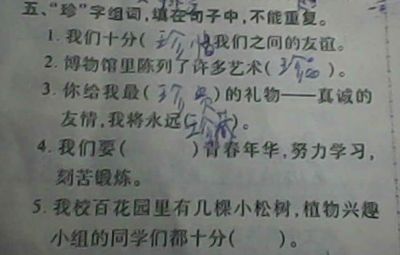 五、“珍”字组词，填在句子中，不能重复。
1. 我们十分(珍惜我们之间的友谊。
2. 博物馆里陈列了许多艺术(珍品)。
3. 你给我最(珍贵)的礼物——真诚的
友情，我将永远(珍藏)。
4. 我们要( )青春年华，努力学习，
刻苦锻炼。
5. 我校百花园里有几棵小松树，植物兴趣
小组的同学们都十分( )。